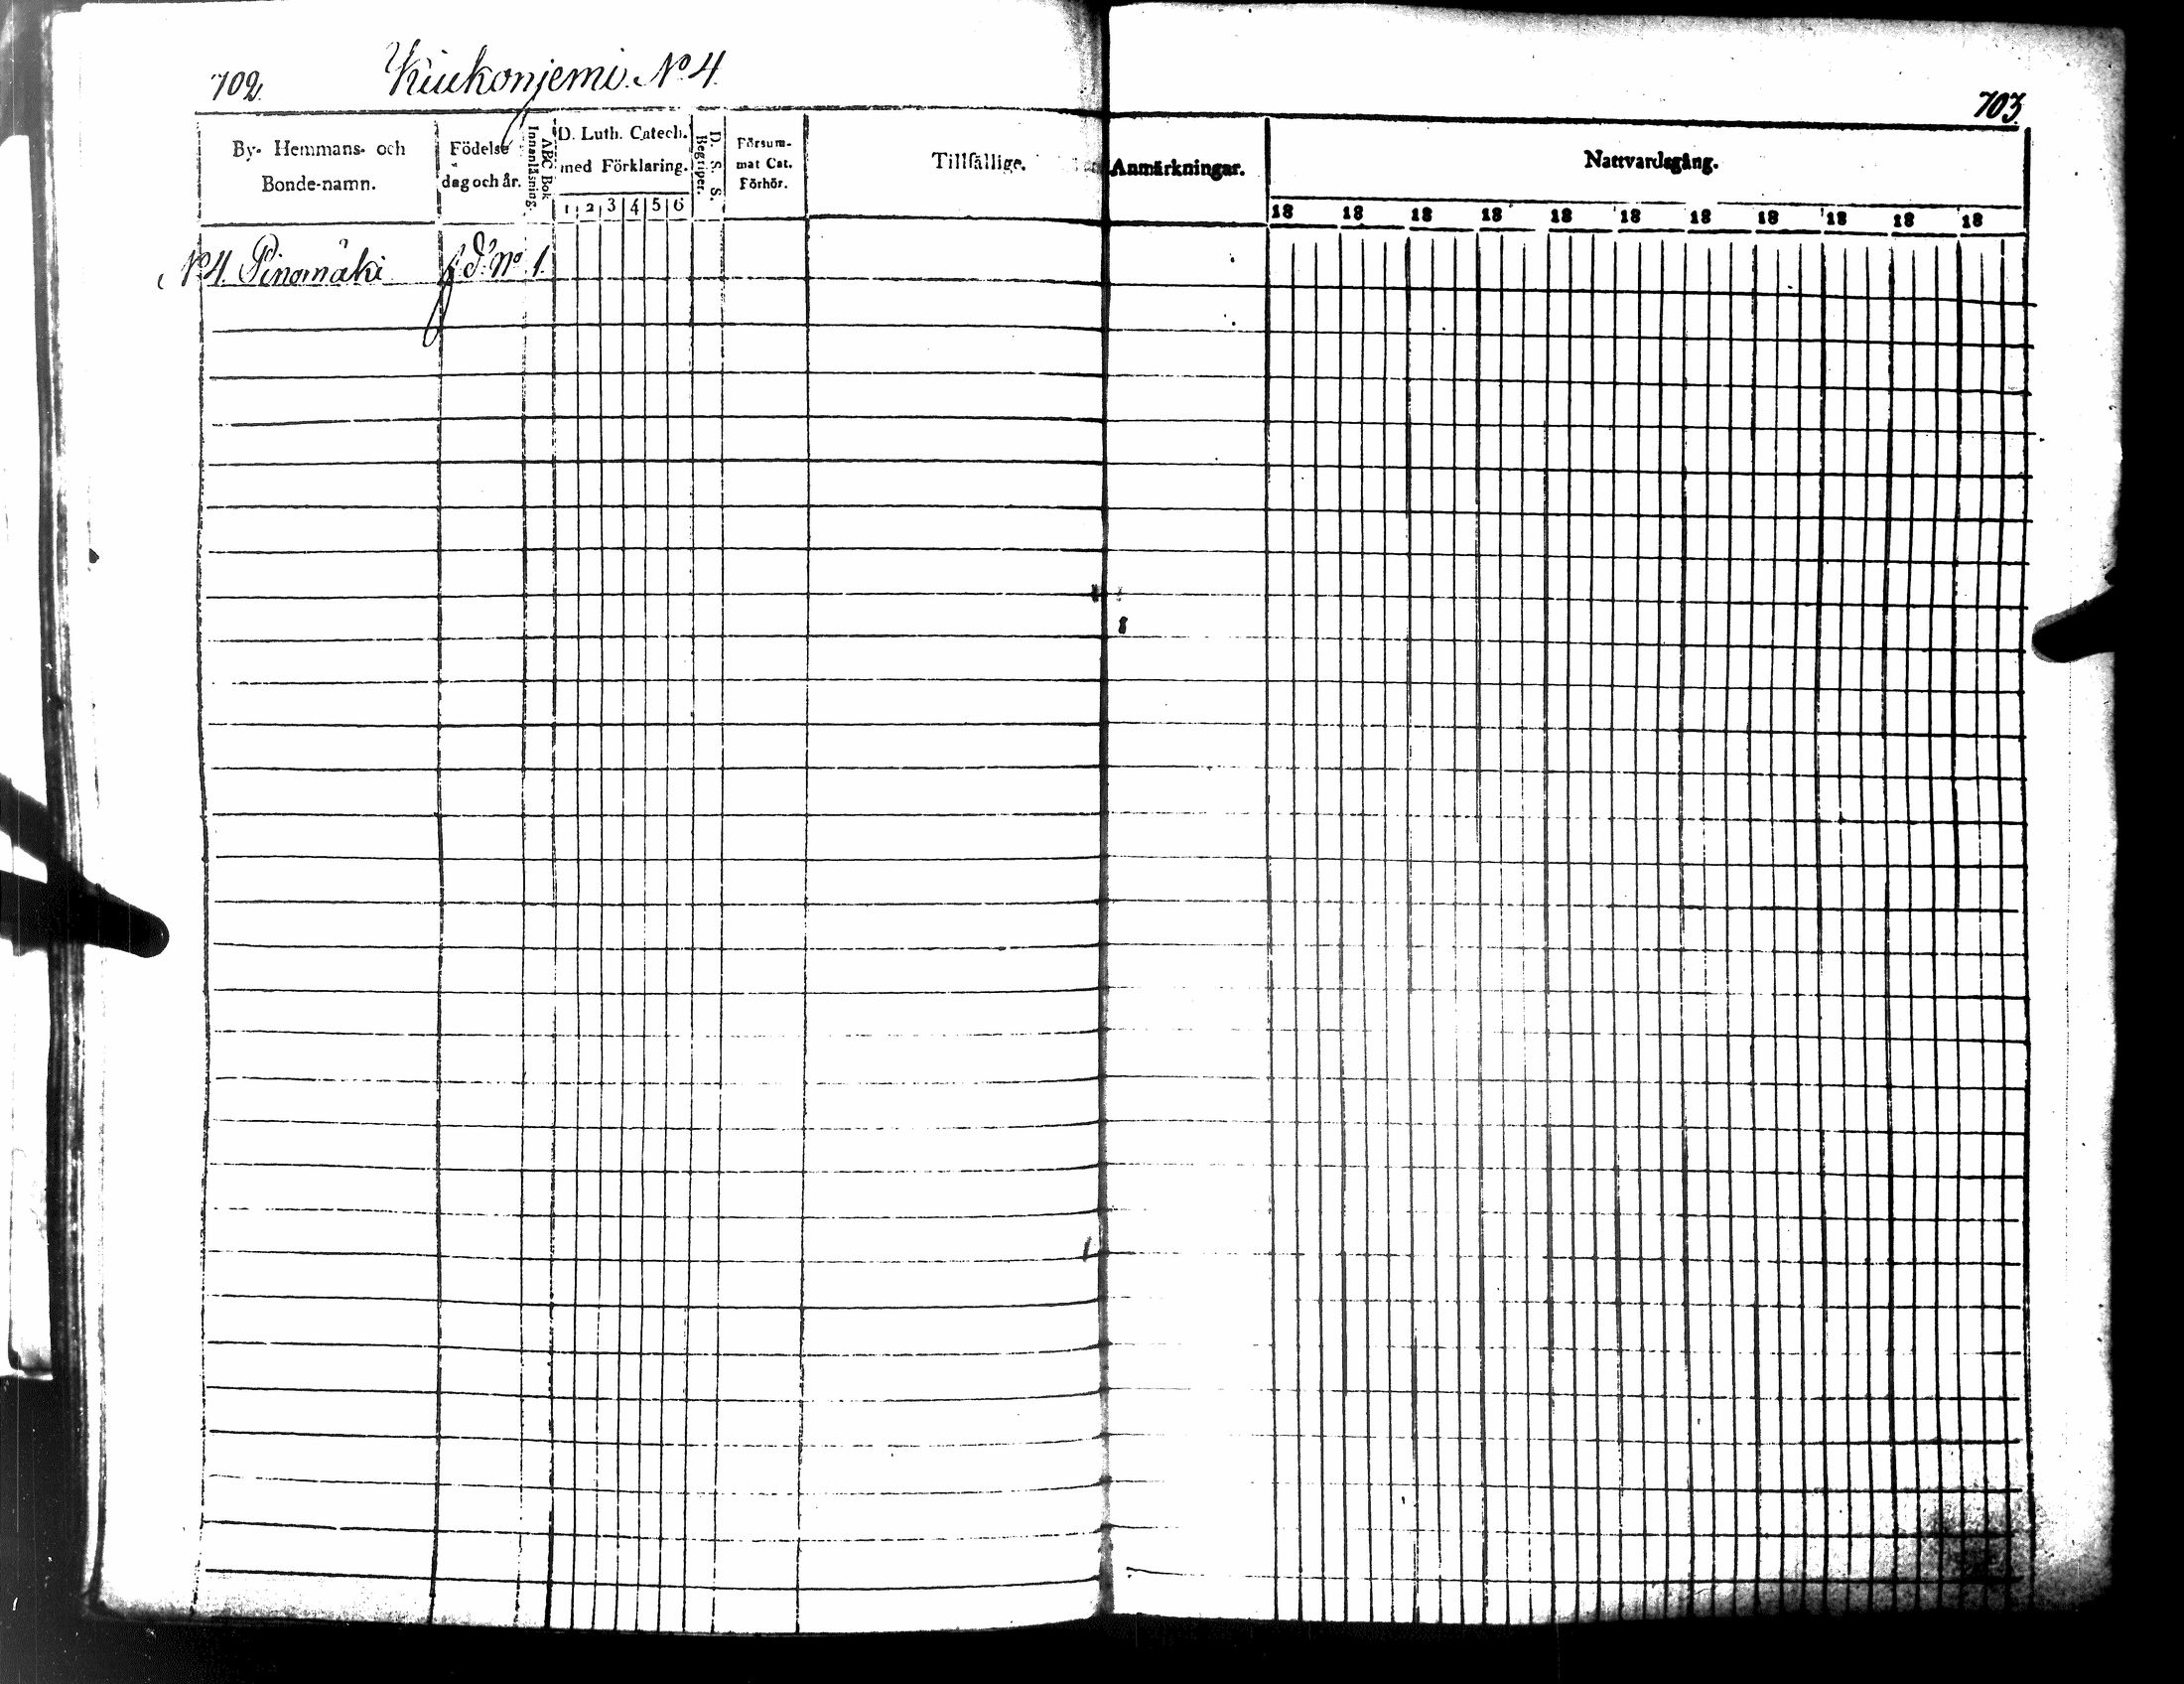 702. Kiukonjemi. No 4.
703.
By- Hemmans- och
Bonde-namn.
Födelse
dag och år.
ABC Bok
Innanläsning.
D. Luth. Catech.
med Förklaring.
1 2 3 4 5 6
D. S. S.
Begriper.
Försum-
mat Cat.
Förhör.
Tillfällige.
Anmärkningar.
Nattvardsgång.
18 18 18 18 18 18 18 18 18 18 18
No 4. Pinomäki f. d. No 1.